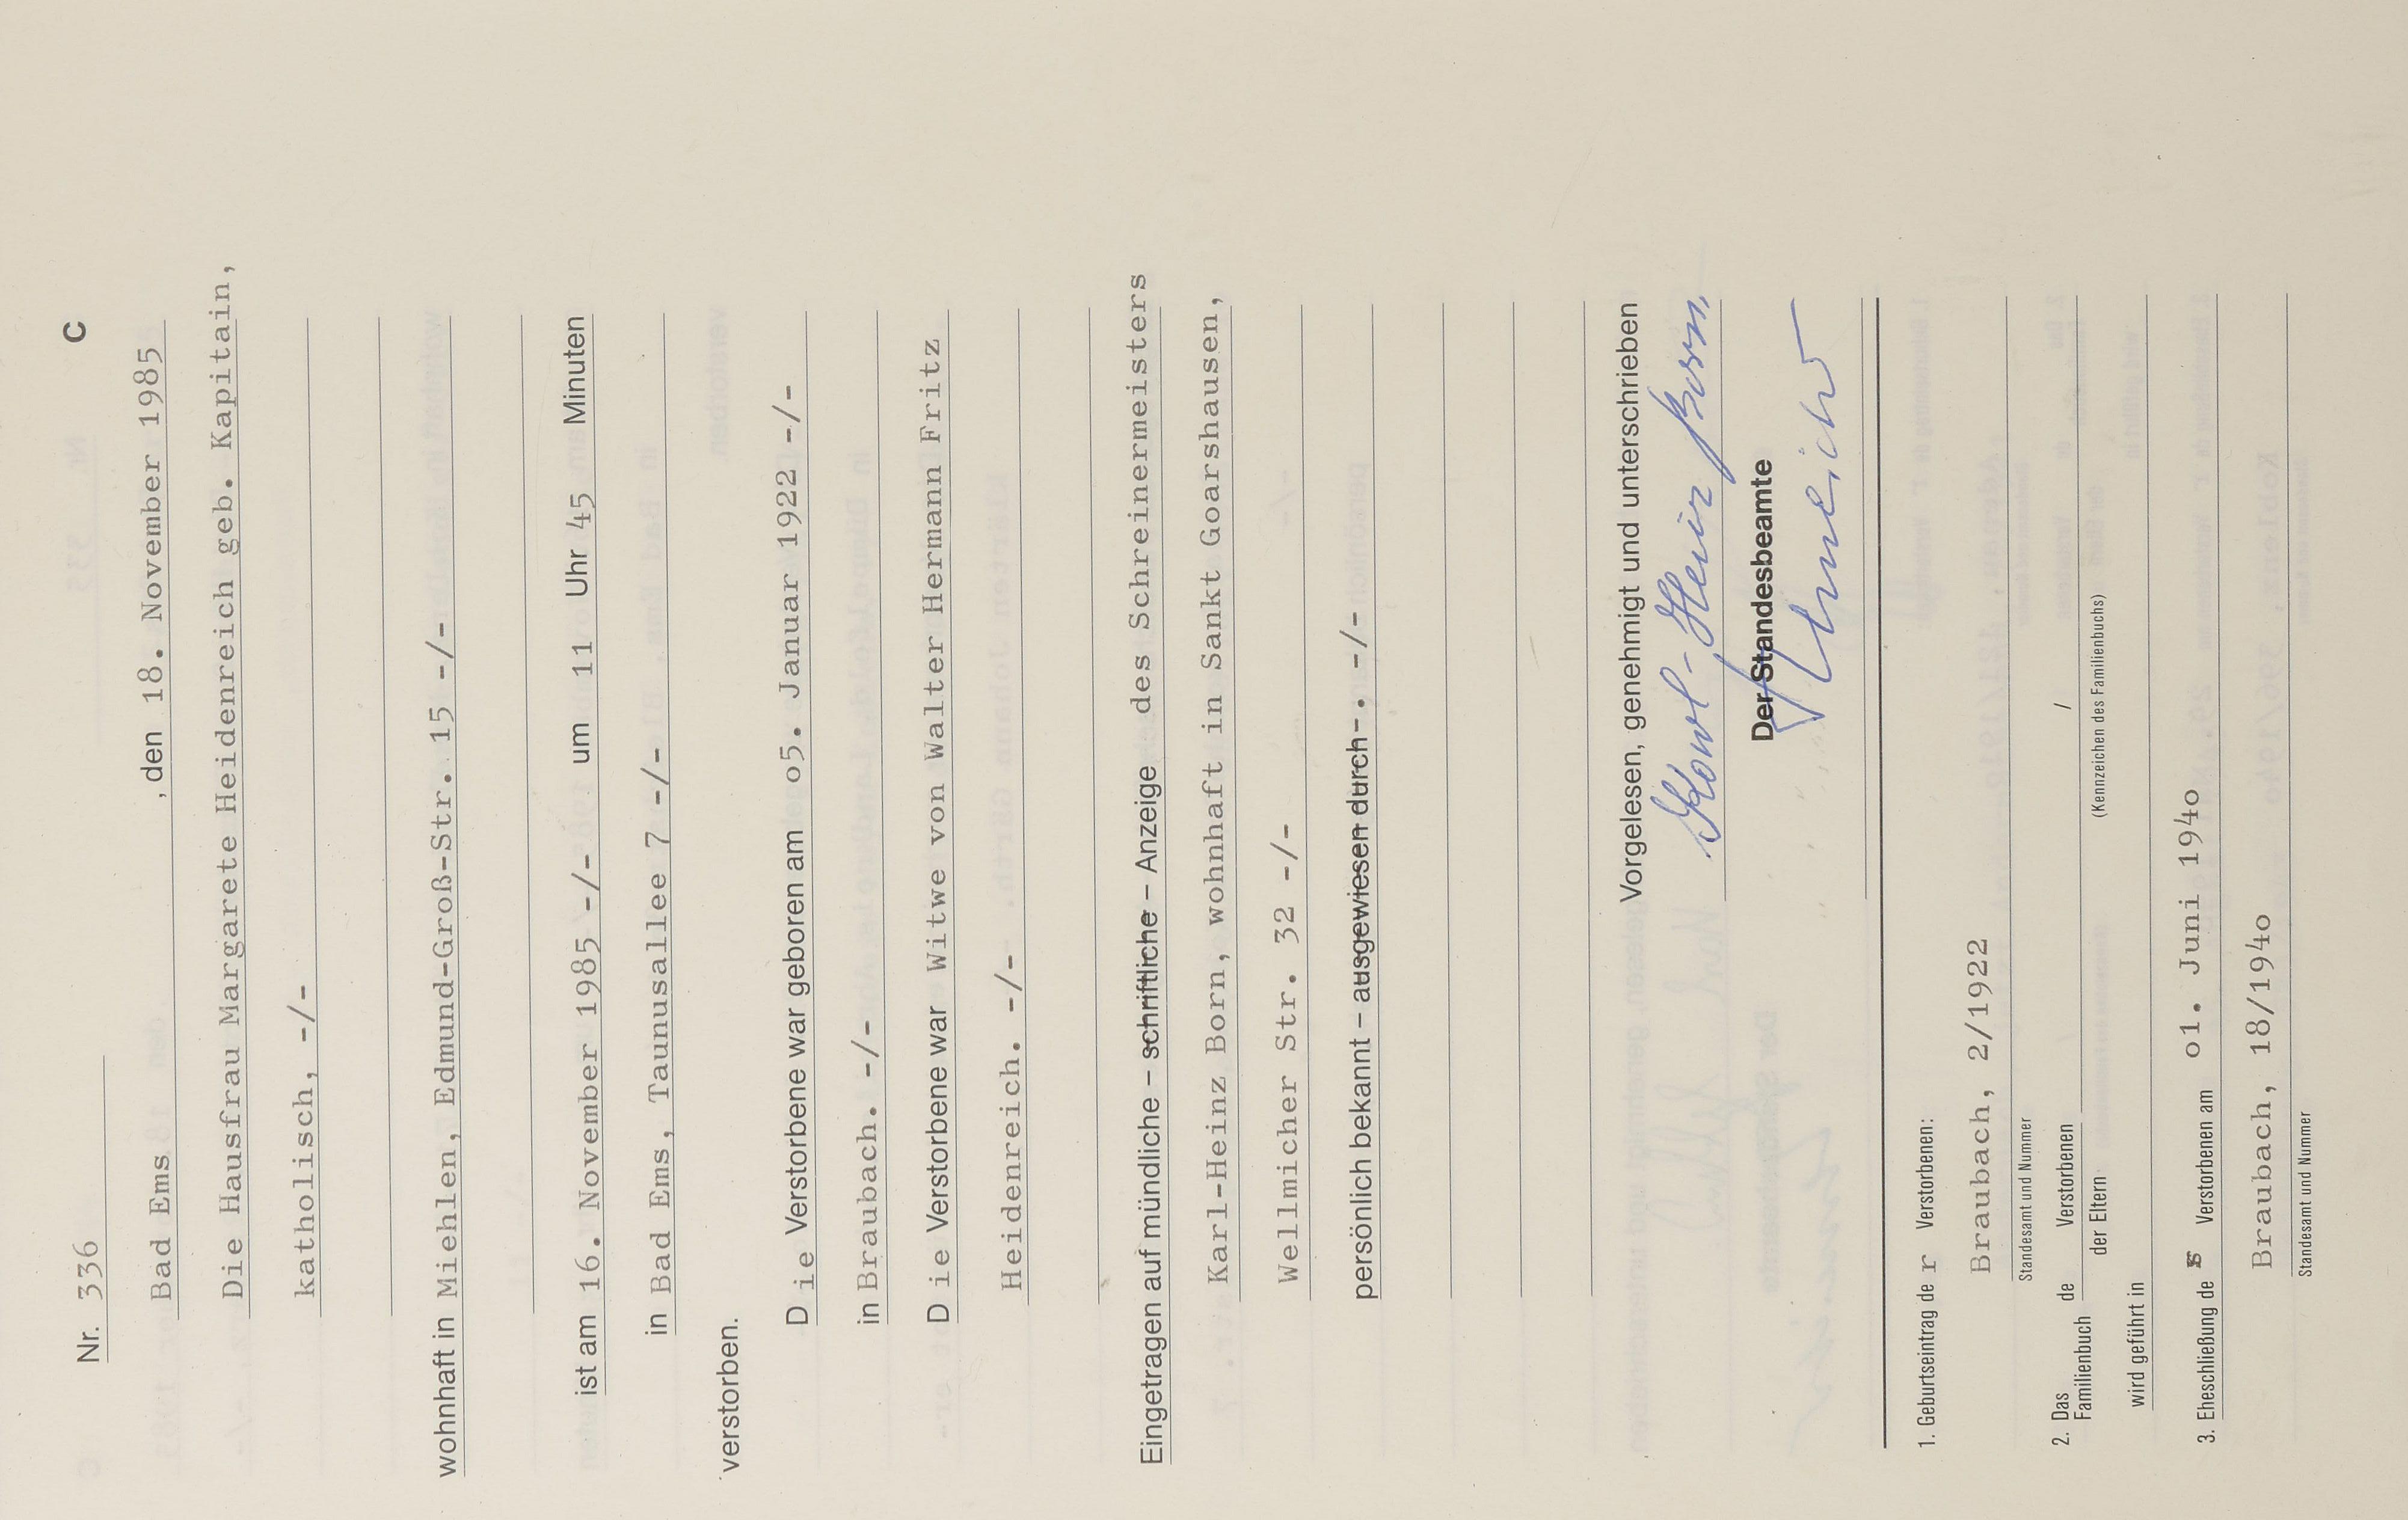 Nr. 336 C
Bad Ems , den 18. November 1985
Die Hausfrau Margarete Heidenreich geb. Kapitain,
katholisch, -/-
wohnhaft in Miehlen, Edmund-Groß-Str. 15 -/-
ist am 16. November 1985 -/- um 11 Uhr 45 Minuten
in Bad Ems, Taunusallee 7 -/-
verstorben.
Die Verstorbene war geboren am o5. Januar 1922 -/-
in Braubach. -/-
Die Verstorbene war Witwe von Walter Hermann Fritz
Heidenreich. -/-
Eingetragen auf mündliche – schriftliche – Anzeige des Schreinermeisters
Karl-Heinz Born, wohnhaft in Sankt Goarshausen,
Wellmicher Str. 32 -/-
persönlich bekannt – ausgewiesen durch -. -/-
Vorgelesen, genehmigt und unterschrieben
Karl-Heinz Born
Der Standesbeamte
1. Geburtseintrag der Verstorbenen:
Braubach, 2/1922
Standesamt und Nummer
2. Das Familienbuch de Verstorbenen /
der Eltern (Kennzeichen des Familienbuchs)
wird geführt in
3. Eheschließung de Verstorbenen am o1. Juni 194o
Braubach, 18/194o
Standesamt und Nummer